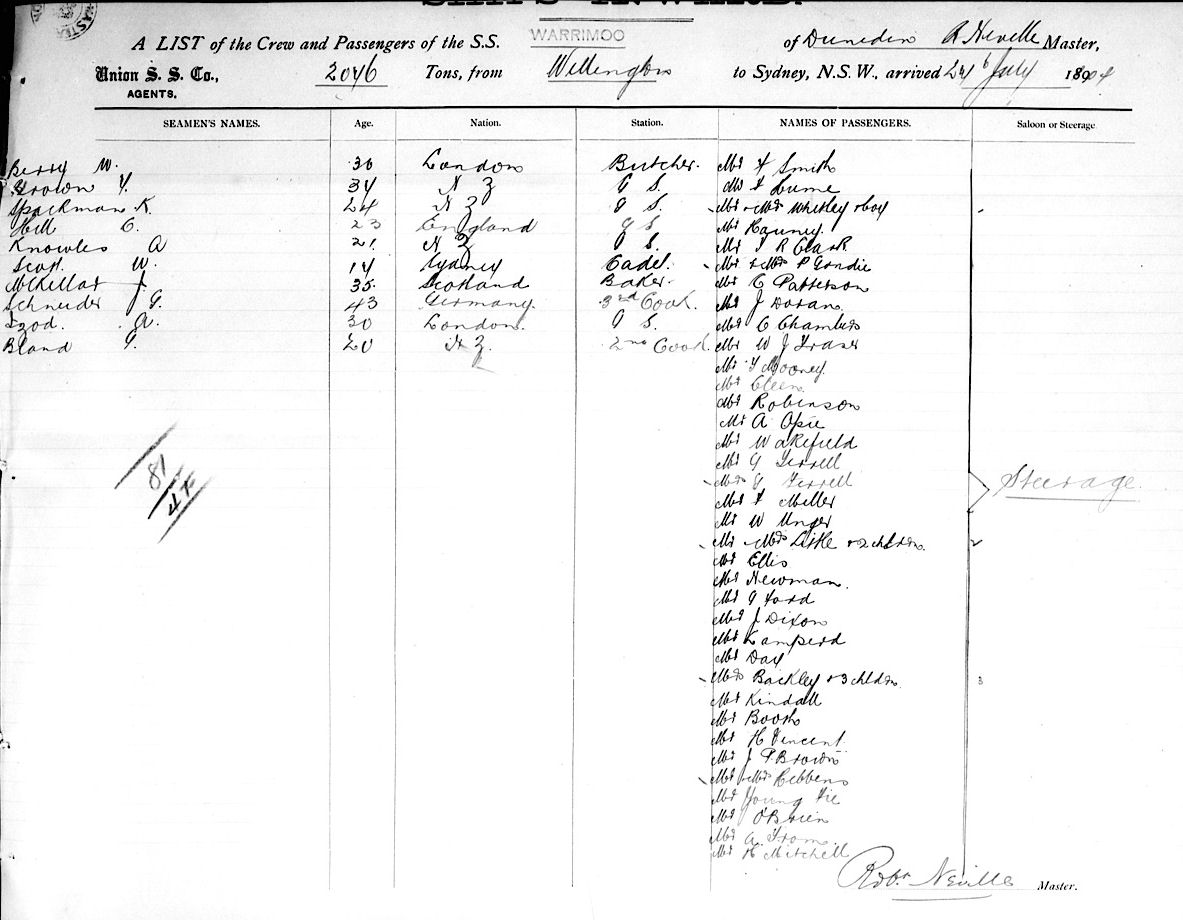 SHIPS INWARD.
A LIST of the Crew and Passengers of the S.S. WARRIMOO of Dunedin R Neville Master,
Union S. S. Co., AGENTS. 2046 Tons, from Wellington to Sydney, N.S.W., arrived 24th July 1904
SEAMEN'S NAMES. Age. Nation. Station. NAMES OF PASSENGERS. Saloon or Steerage
Berry W. 30 London Butcher. Mr H Smith
Brown Y. 34 N Z G S. Mr Hume
Spackman K. 24 N Z G S. Mr & Mrs Whitley & boy
Hill C. 23 England G S Mr
Knowles A 21. N Z G S. Mr J R Clark
Scott. W. 17 Sydney Cadet. Mr & Mrs P Gondie
McKellar J 35. Scotland Baker. Mr C Patterson
Schneider G. 43 Germany. 3rd Cook. Mr J Doran.
Izod. A. 30 London. G S. Mr C Chambers
Bland G. 20 N Z. 2nd Cook. Mr W J Fraser
Mr Mooney
Mr
Mr Robinson
Mr A Opie
Mr Wakefield
Mr G Terrell
Mrs G Terrell
Steerage.
Mr H Miller
81
Mr W Unger
42
Mr Mrs & 2 chldrn.
Mr Ellis
Mr Newman.
Mr G Ford
Mr J Dixon
Mr Lamperd
Mr Day
Mrs Backley & 3 chldrn.
Mr Kindall
Mr Booth
Mr H Vincent.
Mr J P. Brown
Mr & Mrs Hebbens
Mr Young
Mr O'Brien
Mr A. From
Mr H Mitchell
Robt Neville Master.